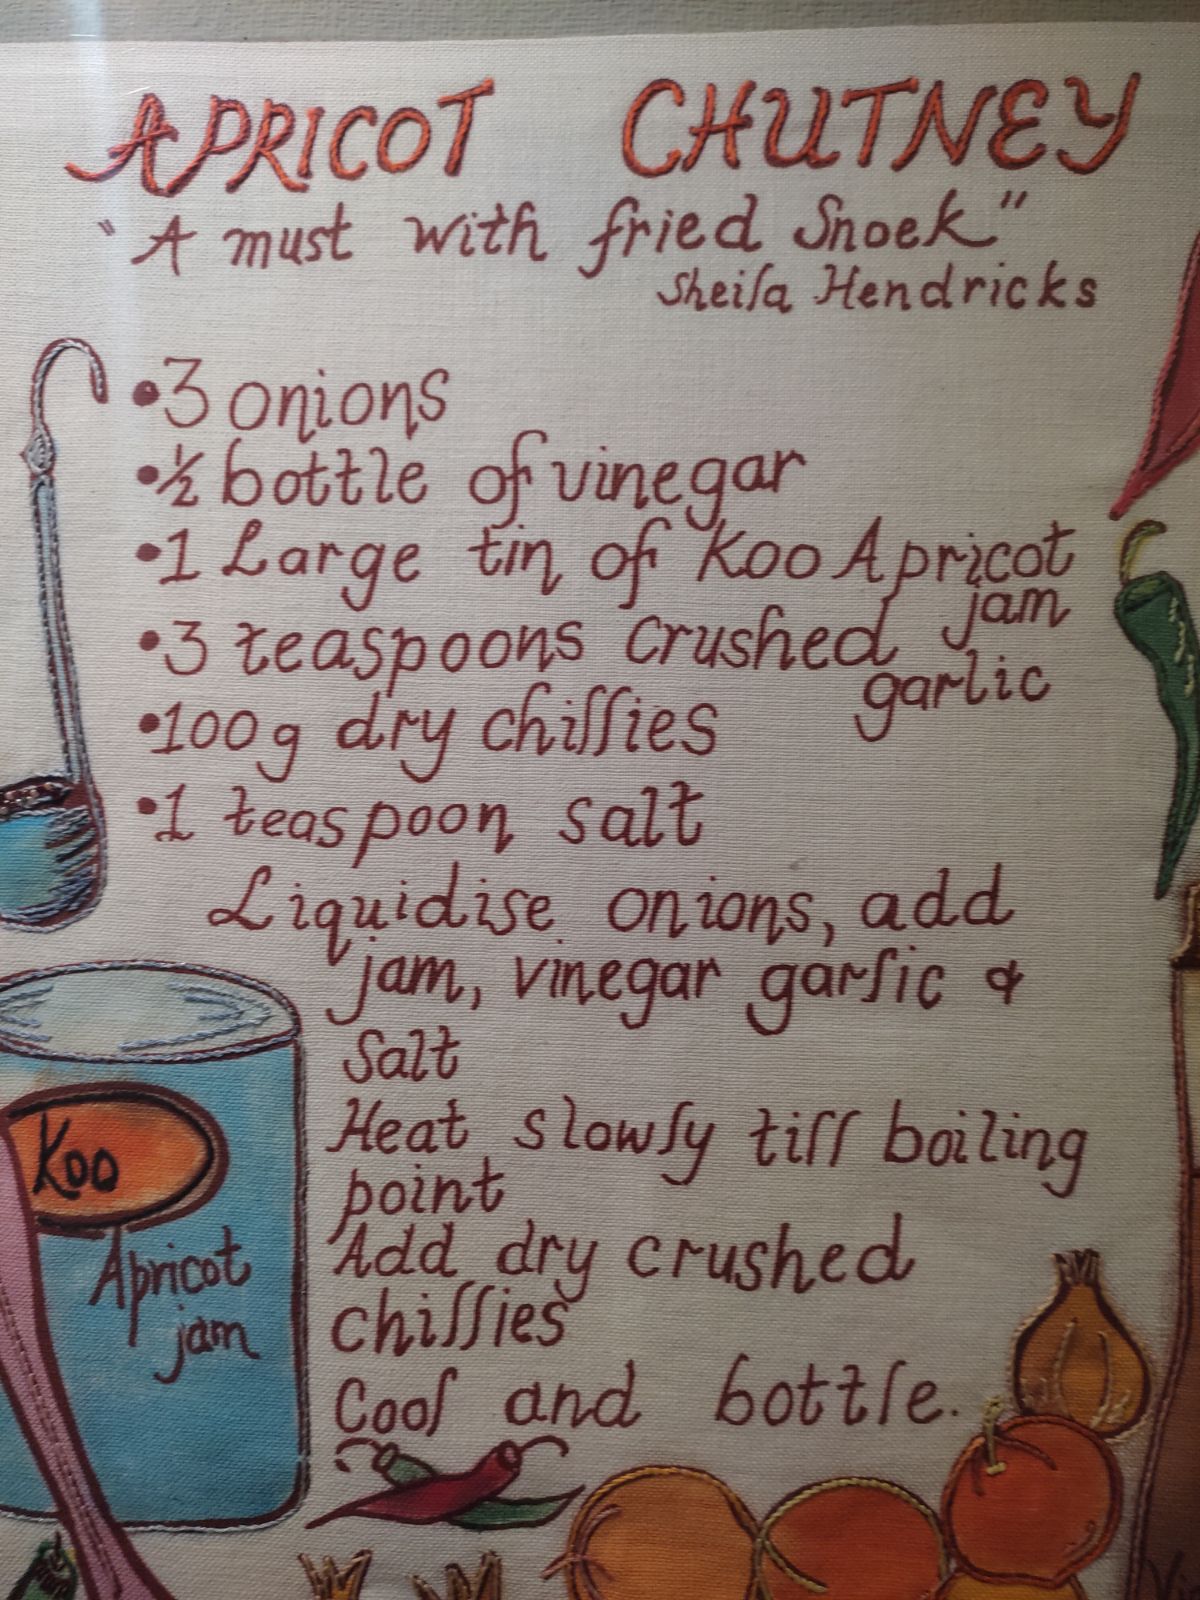 APRICOT CHUTNEY
"A must with fried Snoek"
Sheila Hendricks
•3 onions
•½ bottle of vinegar
•1 Large tin of Koo Apricot
jam
•3 teaspoons crushed
garlic
•100g dry chillies
•1 teaspoon salt
Liquidise onions, add
jam, vinegar garlic &
Salt
Heat slowly till boiling
point
Add dry crushed
chillies
Cool and bottle.
Koo
Apricot
jam